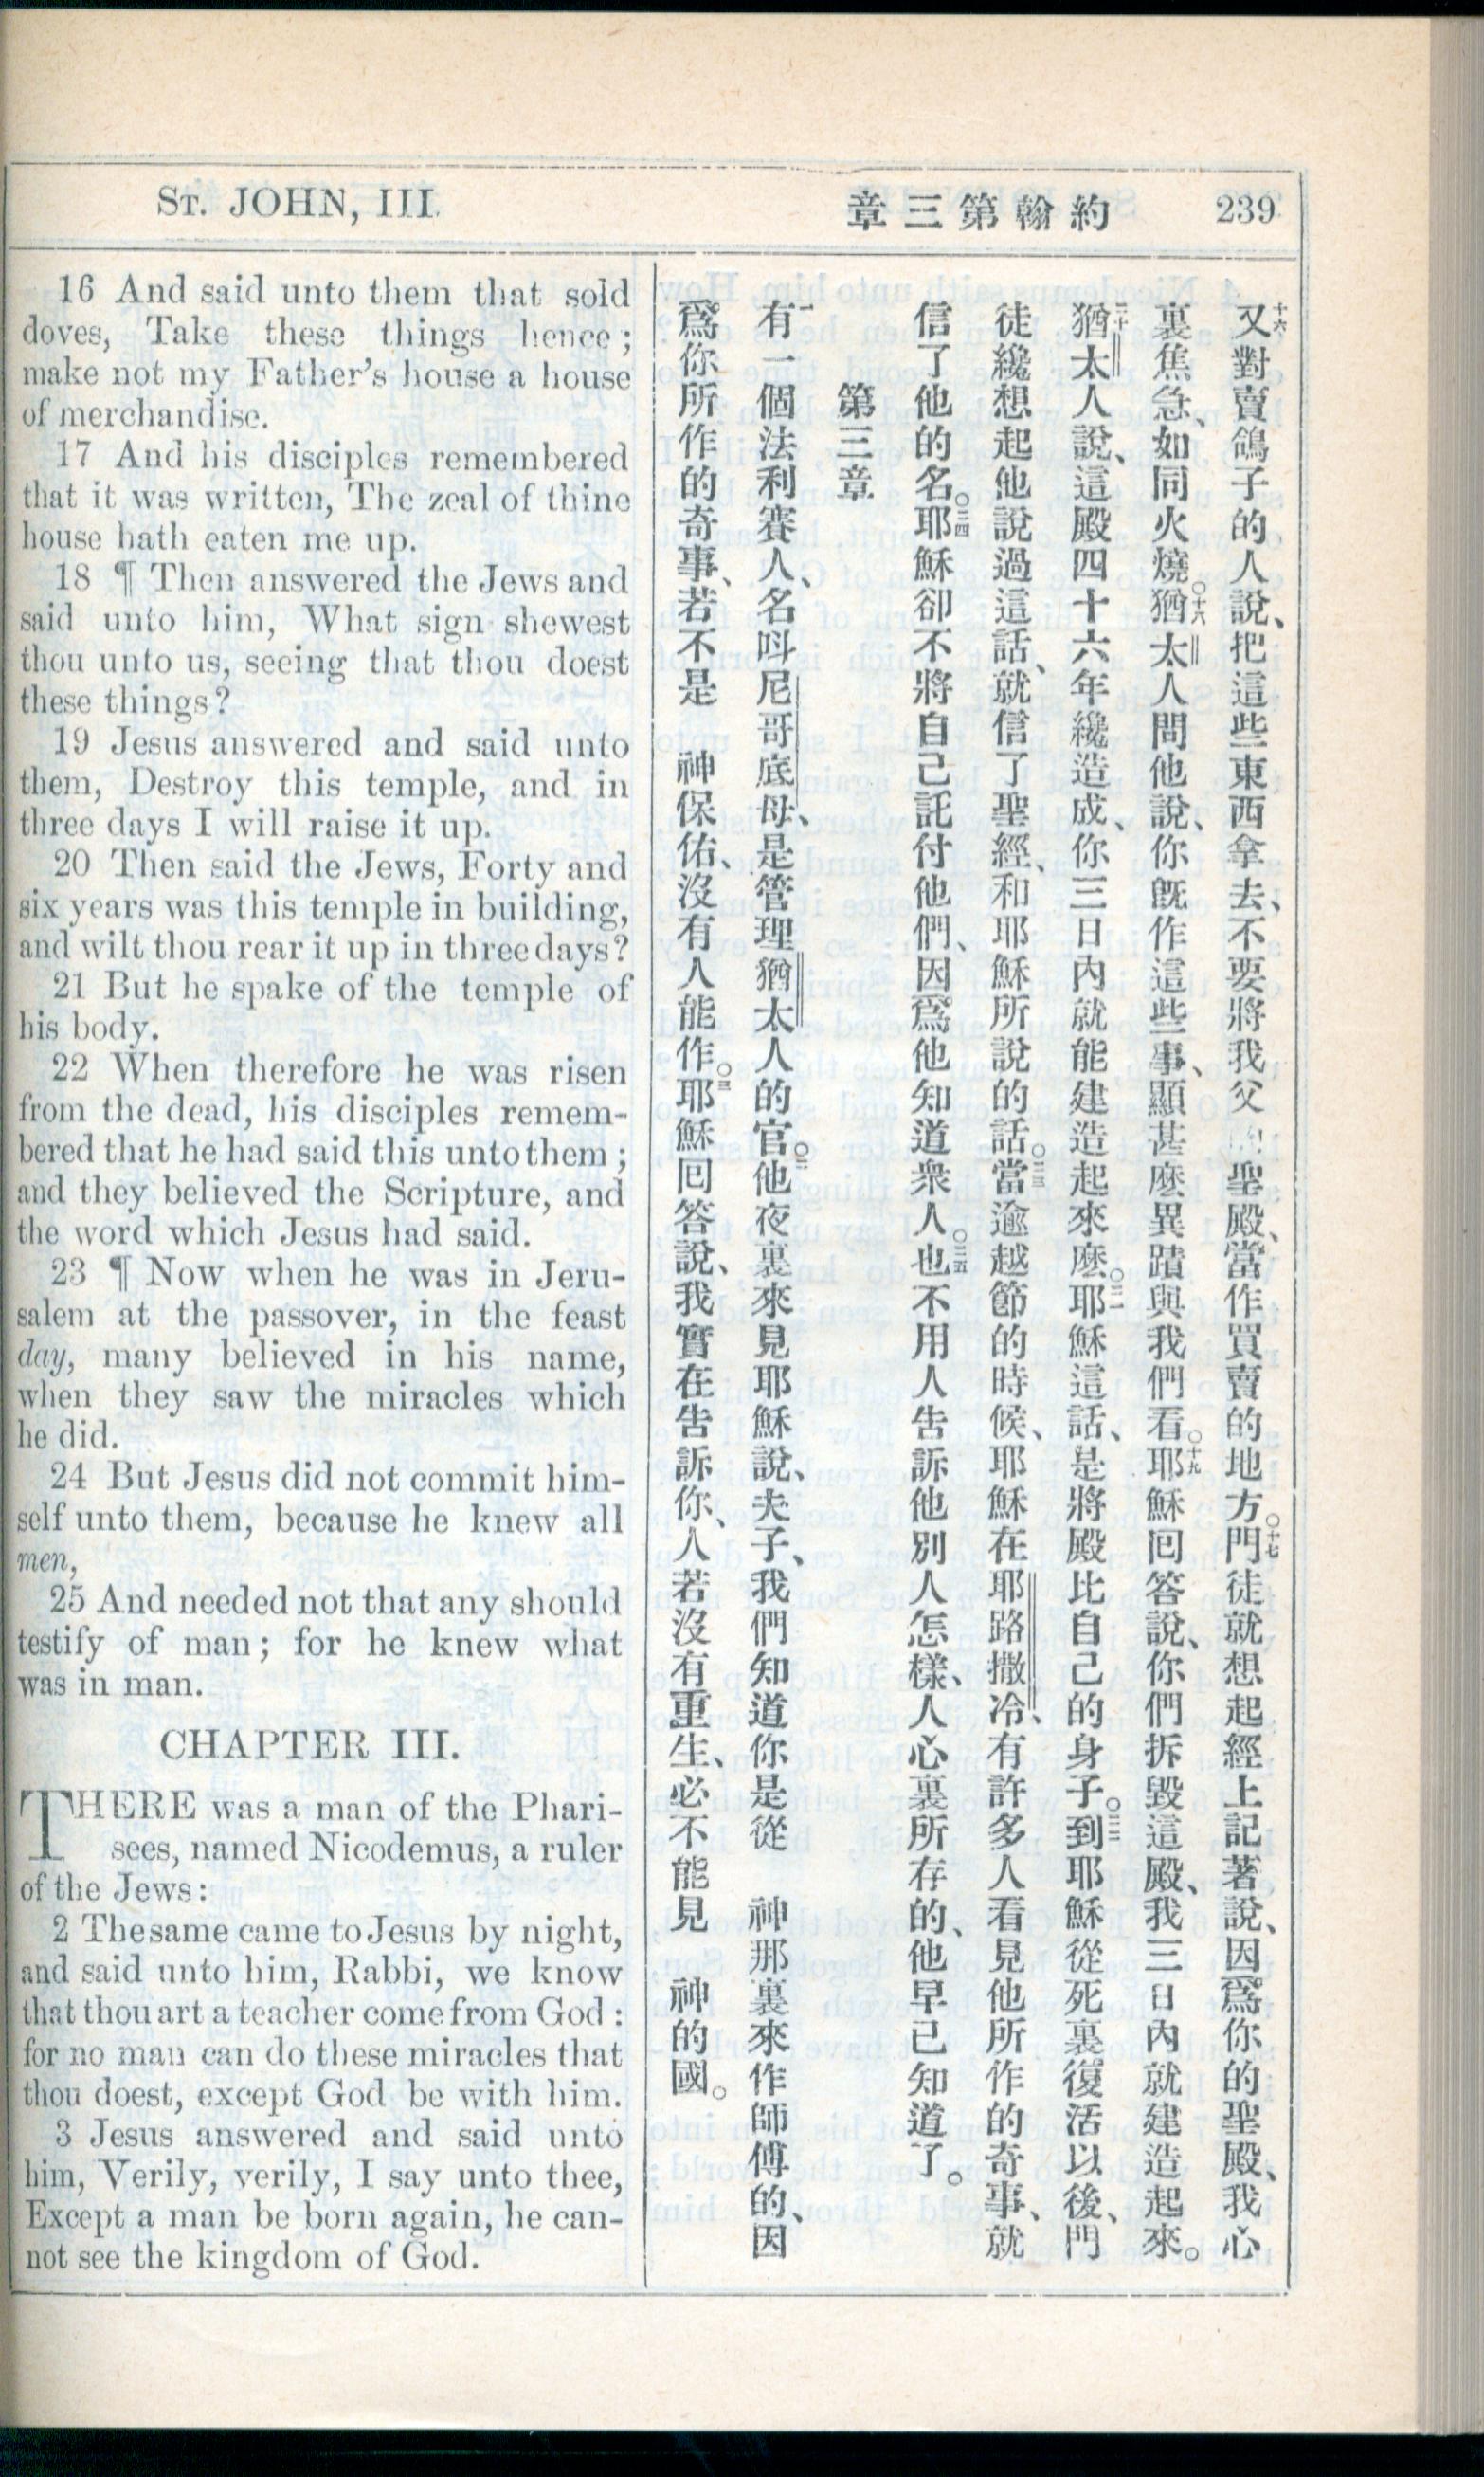 St. JOHN, III.
章三第翰約
239
16 And said unto them that sold
doves, Take these things hence;
make not my Father's house a house
of merchandise.
17 And his disciples remembered
that it was written, The zeal of thine
house hath eaten me up.
18 ¶ Then answered the Jews and
said unto him, What sign shewest
thou unto us, seeing that thou doest
these things?
19 Jesus answered and said unto
them, Destroy this temple, and in
three days I will raise it up.
20 Then said the Jews, Forty and
six years was this temple in building,
and wilt thou rear it up in three days?
21 But he spake of the temple of
his body.
22 When therefore he was risen
from the dead, his disciples remem-
bered that he had said this unto them;
and they believed the Scripture, and
the word which Jesus had said.
23 ¶ Now when he was in Jeru-
salem at the passover, in the feast
day, many believed in his name,
when they saw the miracles which
he did.
24 But Jesus did not commit him-
self unto them, because he knew all
men,
25 And needed not that any should
testify of man; for he knew what
was in man.
CHAPTER III.
THERE was a man of the Phari-
sees, named Nicodemus, a ruler
of the Jews:
2 The same came to Jesus by night,
and said unto him, Rabbi, we know
that thou art a teacher come from God:
for no man can do these miracles that
thou doest, except God be with him.
3 Jesus answered and said unto
him, Verily, verily, I say unto thee,
Except a man be born again, he can-
not see the kingdom of God.
十六又對賣鴿子的人說、把這些東西拿去、不要將我父聖殿、當作買賣的地方。十七門徒就想起經上記著說、因爲你的聖殿、我心
裏焦急、如同火燒。十六猶太人問他說、你旣作這些事、顯甚麽異蹟與我們看。十九耶穌回答說、你們拆毀這殿、我三日內就建造起來。
二十猶太人說、這殿四十六年纔造成、你三日內就能建造起來麽。二一耶穌這話、是將殿比自己的身子。二二到耶穌從死裏復活以後、門
徒纔想起他說過這話、就信了聖經、和耶穌所說的話。二三當逾越節的時候、耶穌在耶路撒冷、有許多人看見他所作的奇事、就
信了他的名。二四耶穌卻不將自己託付他們、因爲他知道衆人。二五也不用人告訴他別人怎樣、人心裏所存的、他早已知道了。
第三章
一有一個法利賽人、名呌尼哥底母、是管理猶太人的官。二他夜裏來見耶穌說、夫子、我們知道你是從 神那裏來作師傅的、因
爲你所作的奇事、若不是 神保佑、沒有人能作。三耶穌回答說、我實在告訴你、人若沒有重生、必不能見 神的國。